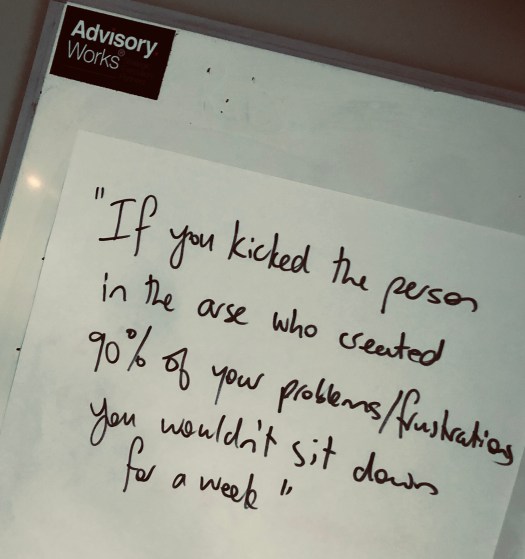 Advisory
Works
"If you kicked the person
in the arse who created
90% of your problems/frustrations
you wouldn't sit down
for a week"